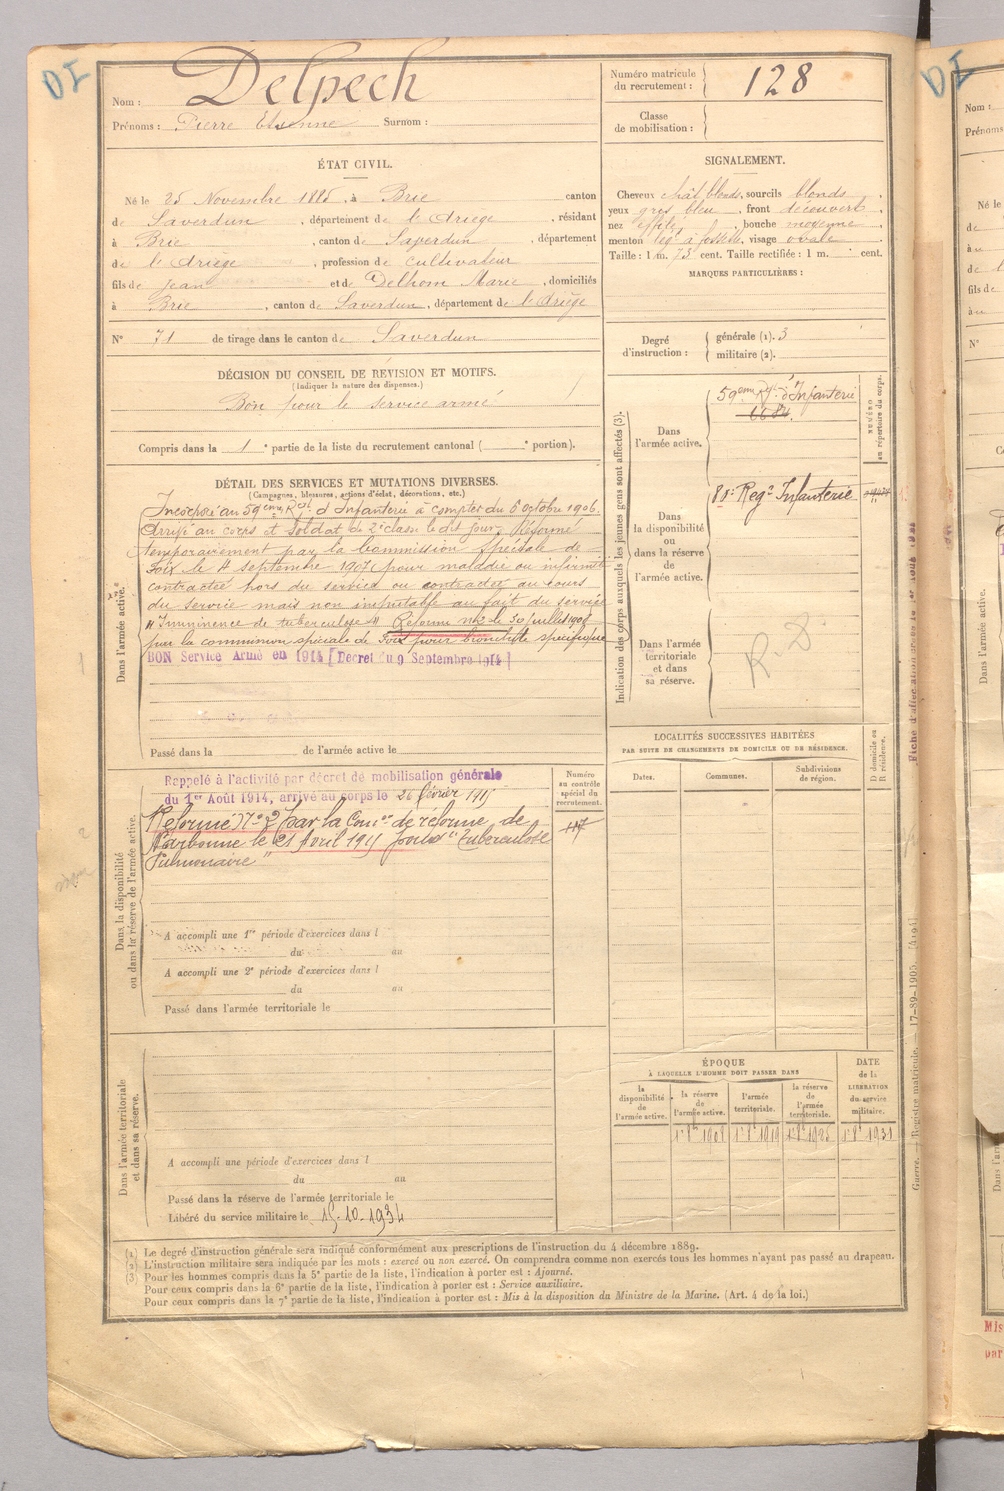 DI
Nom : Delpech
Prénoms : Pierre Etienne Surnom :
Numéro matricule du recrutement : 128
Classe de mobilisation :
ÉTAT CIVIL.
Né le 25 Novembre 1885, à Brie canton
de Saverdun, département de l'Ariège, résidant
à Brie, canton de Saverdun, département
de l'Ariège, profession de cultivateur
fils de Jean et de Delhom Marie, domiciliés
à Brie, canton de Saverdun, département de l'Ariège
N° 71 de tirage dans le canton de Saverdun
DÉCISION DU CONSEIL DE RÉVISION ET MOTIFS.
(Indiquer la nature des dispenses.)
Bon pour le service armé
Compris dans la 1e partie de la liste du recrutement cantonal ( e portion).
SIGNALEMENT.
Cheveux chât blonds, sourcils blonds,
yeux gris bleu, front découvert,
nez effilé, bouche moyenne
menton lég à fossette, visage ovale
Taille : 1 m. 73 cent. Taille rectifiée : 1 m. cent.
MARQUES PARTICULIÈRES :
Degré d'instruction :
générale (1). 3
militaire (2).
DÉTAIL DES SERVICES ET MUTATIONS DIVERSES.
(Campagnes, blessures, actions d'éclat, décorations, etc.)
Dans l'armée active.
Incorporé au 59eme Rgt d'Infanterie à compter du 6 octobre 1906.
Arrivé au corps et soldat de 2e classe le dit jour. Réformé
temporairement par la Commission spéciale de
Foix le 4 septembre 1907 pour maladie ou infirmité
contractée hors du service ou contractée au cours
du service mais non imputable au fait du service
"Imminence de tuberculose" Réformé n°2 le 30 juillet 1908
par la commission spéciale de Foix pour bronchite spécifique
BON Service Armé en 1914 [Décret du 9 Septembre 1914]
Passé dans la de l'armée active le
Dans la disponibilité ou dans la réserve de l'armée active.
Rappelé à l'activité par décret de mobilisation générale
du 1er Août 1914, arrivé au corps le 26 février 1915
Réformé N° 2 par la Comon de réforme de
Narbonne le 21 Avril 1915 pour "Tuberculose
Pulmonaire"
A accompli une 1re période d'exercices dans l
du au
A accompli une 2e période d'exercices dans l
du au
Passé dans l'armée territoriale le
Numéro au contrôle spécial du recrutement.
Dans l'armée territoriale et dans sa réserve.
A accompli une période d'exercices dans l
du au
Passé dans la réserve de l'armée territoriale le
Libéré du service militaire le 15-10-1934
Indication des corps auxquels les jeunes gens sont affectés (3).
NUMÉRO au répertoire du corps.
Dans l'armée active.
59eme Rgt d'Infanterie
Dans la disponibilité ou dans la réserve de l'armée active.
Regt Infanterie
Dans l'armée territoriale et dans sa réserve.
R.D.
LOCALITÉS SUCCESSIVES HABITÉES
PAR SUITE DE CHANGEMENTS DE DOMICILE OU DE RÉSIDENCE.
Dates. Communes. Subdivisions de région. D domicile ou R résidence.
ÉPOQUE
À LAQUELLE L'HOMME DOIT PASSER DANS
la disponibilité de l'armée active.
la réserve de l'armée active.
l'armée territoriale.
la réserve de l'armée territoriale.
DATE de la LIBÉRATION du service militaire.
(1) Le degré d'instruction générale sera indiqué conformément aux prescriptions de l'instruction du 4 décembre 1889.
(2) L'instruction militaire sera indiquée par les mots : exercé ou non exercé. On comprendra comme non exercés tous les hommes n'ayant pas passé au drapeau.
(3) Pour les hommes compris dans la 5e partie de la liste, l'indication à porter est : Ajourné.
Pour ceux compris dans la 6e partie de la liste, l'indication à porter est : Service auxiliaire.
Pour ceux compris dans la 7e partie de la liste, l'indication à porter est : Mis à la disposition du Ministre de la Marine. (Art. 4 de la loi.)
Guerre. — Registre matricule. — 17-89-1905.
DI
Nom :
Prénoms
Né le
de
à
de l
fils de
à
N°
Mis
par